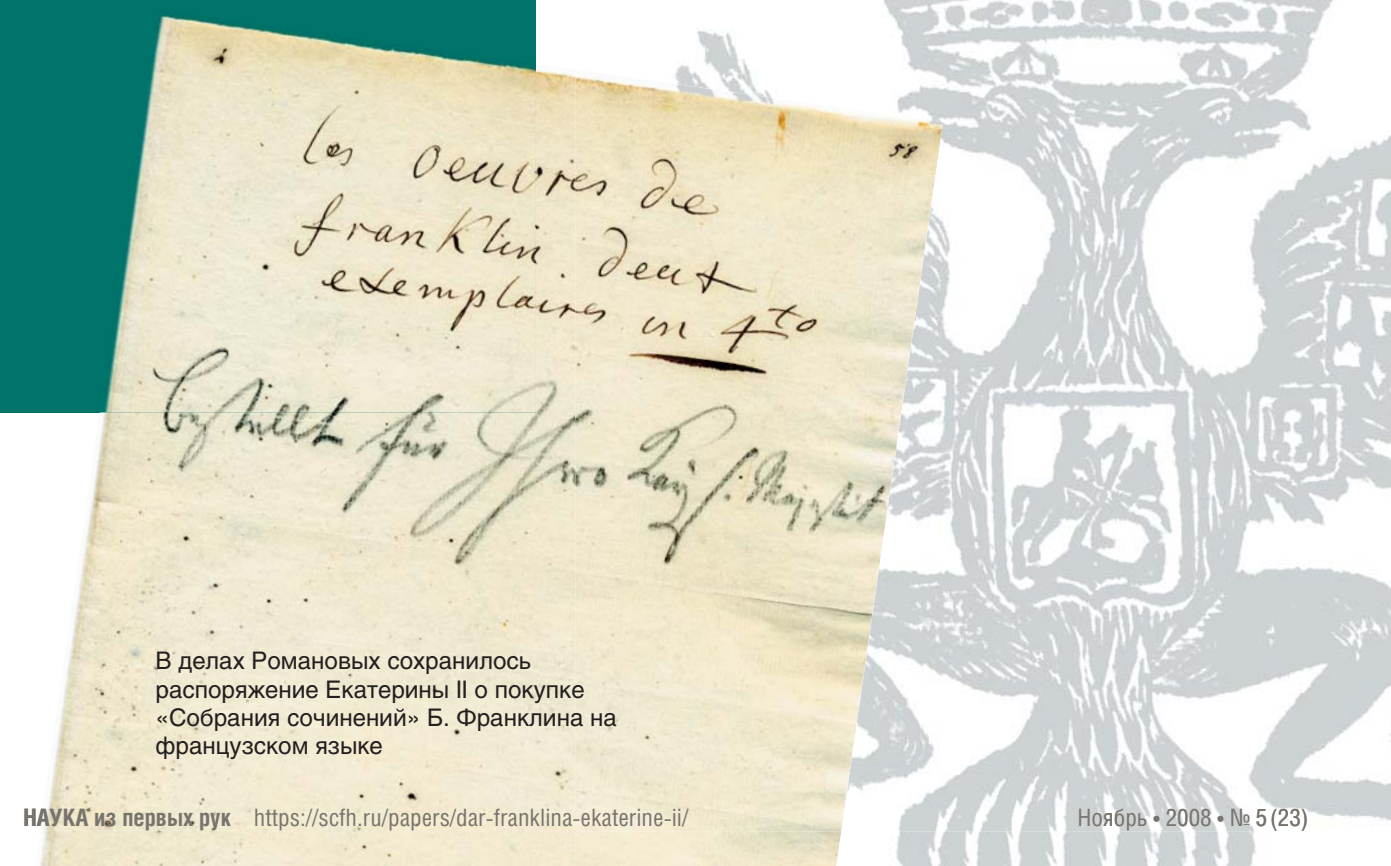 58
les oeuvres de
franklin. deux
exemplaires in 4to
bestellt für Ihro Kays. Majestät
В делах Романовых сохранилось
распоряжение Екатерины II о покупке
«Собрания сочинений» Б. Франклина на
французском языке
НАУКА из первых рук https://scfh.ru/papers/dar-franklina-ekaterine-ii/ Ноябрь • 2008 • № 5 (23)